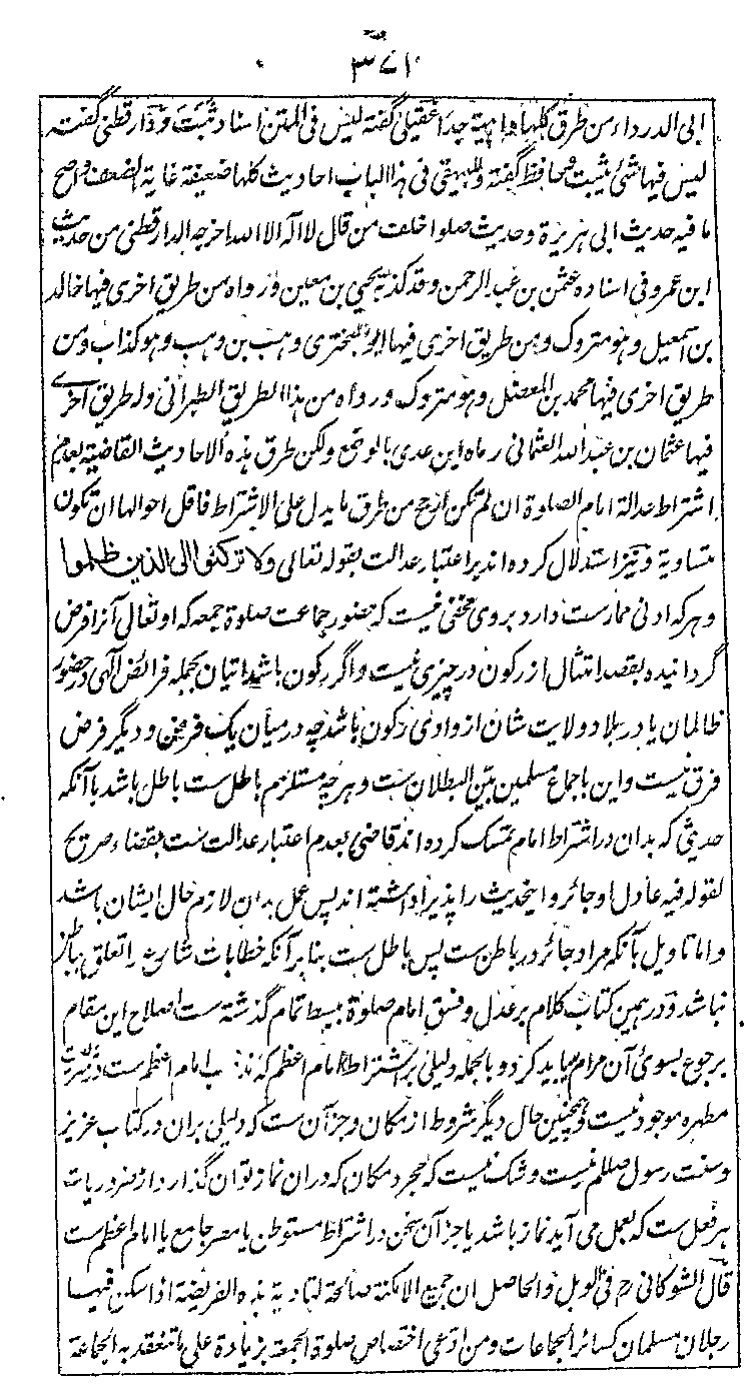 ۳۷۱
ابی الدرداء من طرق کلها واهیة جدا عقیلی گفته لیس فی المتن اسناد ثبت و دار قطنی گفته
لیس فیها شیٔ یثبت و حافظ گفته وللبیهقی فی هذا الباب احادیث کلها ضعیفة غایة الضعف و اصح
ما فیه حدیث ابی هریرة و حدیث صلوا خلف من قال لا اله الا الله اخرجه الدارقطنی من حدیث
ابن عمر و فی اسناده عثمن بن عبد الرحمن و قد کذبه یحیی بن معین و رواه من طریق اخری فیها خالد
بن اسمعیل و هو متروک و من طریق اخری فیها ابو البختری وهب بن وهب و هو کذاب و من
طریق اخری فیها محمد بن المفضل و هو متروک و رواه من هذا الطریق الطبرانی وله طریق اخری
فیها عثمان بن عبد الله العثمانی رماه ابن عدی بالوضع ولکن طرق هذه الاحادیث القاضیة بعدم
اشتراط عدالة امام الصلوة ان لم تکن ارجح من طرق ما یدل علی الاشتراط فاقل احوالها ان تکون
متساویة و نیز استدلال کرده اند بر اعتبار عدالت بقوله تعالی ولا ترکنوا الی الذین ظلموا
و هر که ادنی ممارست دارد بروی مخفی نیست که حضور جماعت صلوة جمعه که او تعالی آنرا فرض
گردانیده بقصد امتثال از رکون در چیزی نیست و اگر رکون باشد اتیان بجمله فرائض الهی در حضور
ظالمان یا در بلاد ولایت شان از وادی رکون باشد چه در میان یک فرض و دیگر فرض
فرق نیست و این باجماع مسلمین بین البطلان ست و هر چه مستلزم باطل ست باطل باشد با آنکه
حدیثی که بدان در اشتراط امام تمسک کرده اند قاضی بعدم اعتبار عدالت ست بقضاء صریح
لقوله فیه عادل او جائر و این حدیث را پذیرا داشته اند پس عمل بدان لازم حال ایشان باشد
و اما تاویل بآنکه مراد جائر در باطن ست پس باطل ست بنا بر آنکه خطابات شارع را تعلق بباطن
نباشد و در همین کتاب کلام بر عدل و فسق امام صلوة ببسط تمام گذشته ست اصلاح این مقام
برجوع بسوی آن مرام میباید کرد و بالجمله دلیلی بر اشتراط امام اعظم که امام اعظم ست در شریعت
مطهره موجود نیست و همچنین حال دیگر شروط از مکان و جز آن ست که دلیلی بران در کتاب عزیز
و سنت رسول صللم نیست و شک نیست که مجرد مکان که دران نماز توان گذارد از ضروریات
هر فعل ست که بعمل می آید نماز باشد یا جز آن سخن در اشتراط مستوطن یا مصر جامع یا امام اعظم ست
قال الشوکانی رح فی الوبل والحاصل ان جمیع الامکنة صالحة لتادیة هذه الفریضة اذا سکن فیها
رجلان مسلمان کسائر الجماعات و من ادعی اختصاص صلوة الجمعة بزیادة علی ما تنعقد به الجماعة